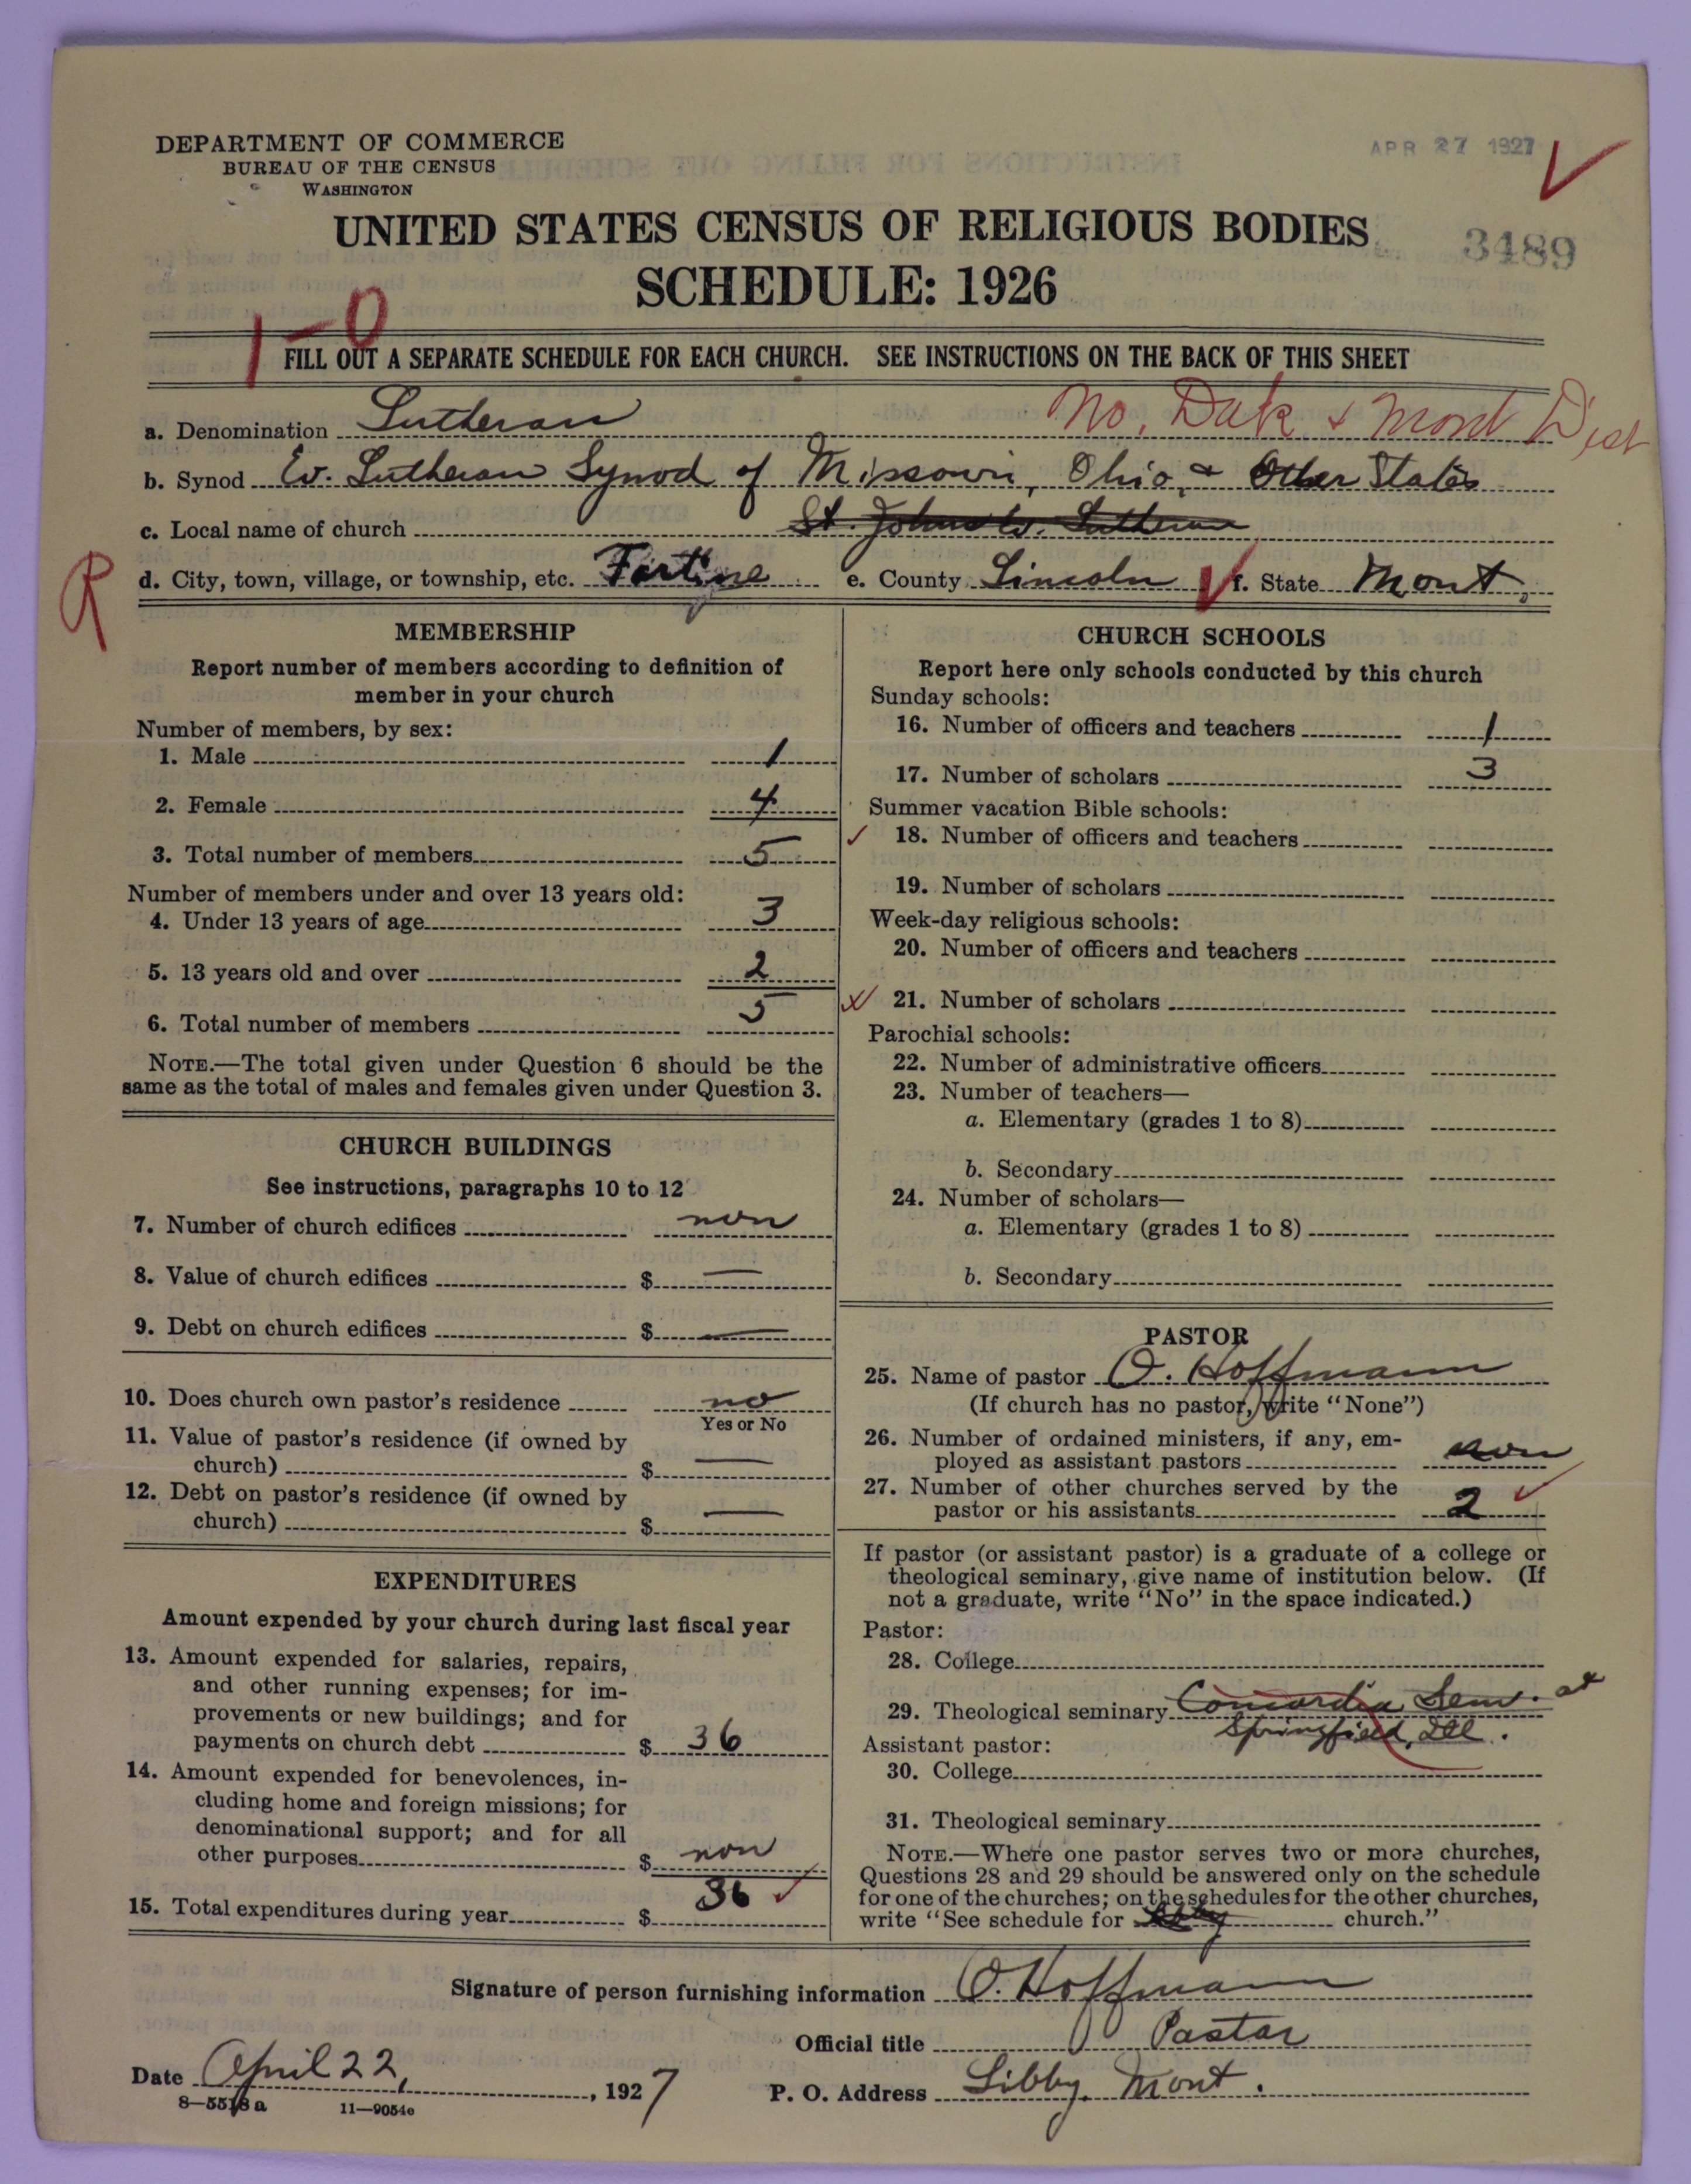 DEPARTMENT OF COMMERCE
BUREAU OF THE CENSUS
WASHINGTON
APR 27 1927
UNITED STATES CENSUS OF RELIGIOUS BODIES
3489
SCHEDULE: 1926
1-0
FILL OUT A SEPARATE SCHEDULE FOR EACH CHURCH. SEE INSTRUCTIONS ON THE BACK OF THIS SHEET
No. Dak & Mont Dist
a. Denomination Lutheran
b. Synod Ev. Lutheran Synod of Missouri, Ohio, & Other States
c. Local name of church St. Johns Ev. Lutheran
R
d. City, town, village, or township, etc. Fortine e. County Lincoln f. State Mont.
MEMBERSHIP
Report number of members according to definition of
member in your church
Number of members, by sex:
1. Male 1
2. Female 4
3. Total number of members 5
Number of members under and over 13 years old:
4. Under 13 years of age 3
5. 13 years old and over 2
6. Total number of members 5
NOTE.—The total given under Question 6 should be the
same as the total of males and females given under Question 3.
CHURCH BUILDINGS
See instructions, paragraphs 10 to 12
7. Number of church edifices non
8. Value of church edifices $ —
9. Debt on church edifices $ —
10. Does church own pastor's residence no
Yes or No
11. Value of pastor's residence (if owned by
church) $ —
12. Debt on pastor's residence (if owned by
church) $ —
EXPENDITURES
Amount expended by your church during last fiscal year
13. Amount expended for salaries, repairs,
and other running expenses; for im-
provements or new buildings; and for
payments on church debt $ 36
14. Amount expended for benevolences, in-
cluding home and foreign missions; for
denominational support; and for all
other purposes $ non
15. Total expenditures during year $ 36
CHURCH SCHOOLS
Report here only schools conducted by this church
Sunday schools:
16. Number of officers and teachers 1
17. Number of scholars 3
Summer vacation Bible schools:
18. Number of officers and teachers
19. Number of scholars
Week-day religious schools:
20. Number of officers and teachers
21. Number of scholars
Parochial schools:
22. Number of administrative officers
23. Number of teachers—
a. Elementary (grades 1 to 8)
b. Secondary
24. Number of scholars—
a. Elementary (grades 1 to 8)
b. Secondary
PASTOR
25. Name of pastor O. Hoffmann
(If church has no pastor, write "None")
26. Number of ordained ministers, if any, em-
ployed as assistant pastors non
27. Number of other churches served by the
pastor or his assistants 2
If pastor (or assistant pastor) is a graduate of a college or
theological seminary, give name of institution below. (If
not a graduate, write "No" in the space indicated.)
Pastor:
28. College
29. Theological seminary Concordia Sem. at
Springfield, Ill.
Assistant pastor:
30. College
31. Theological seminary
NOTE.—Where one pastor serves two or more churches,
Questions 28 and 29 should be answered only on the schedule
for one of the churches; on the schedules for the other churches,
write "See schedule for Libby church."
Signature of person furnishing information O. Hoffmann
Official title Pastor
Date April 22, 1927
P. O. Address Libby, Mont.
8—5518a 11—9054e